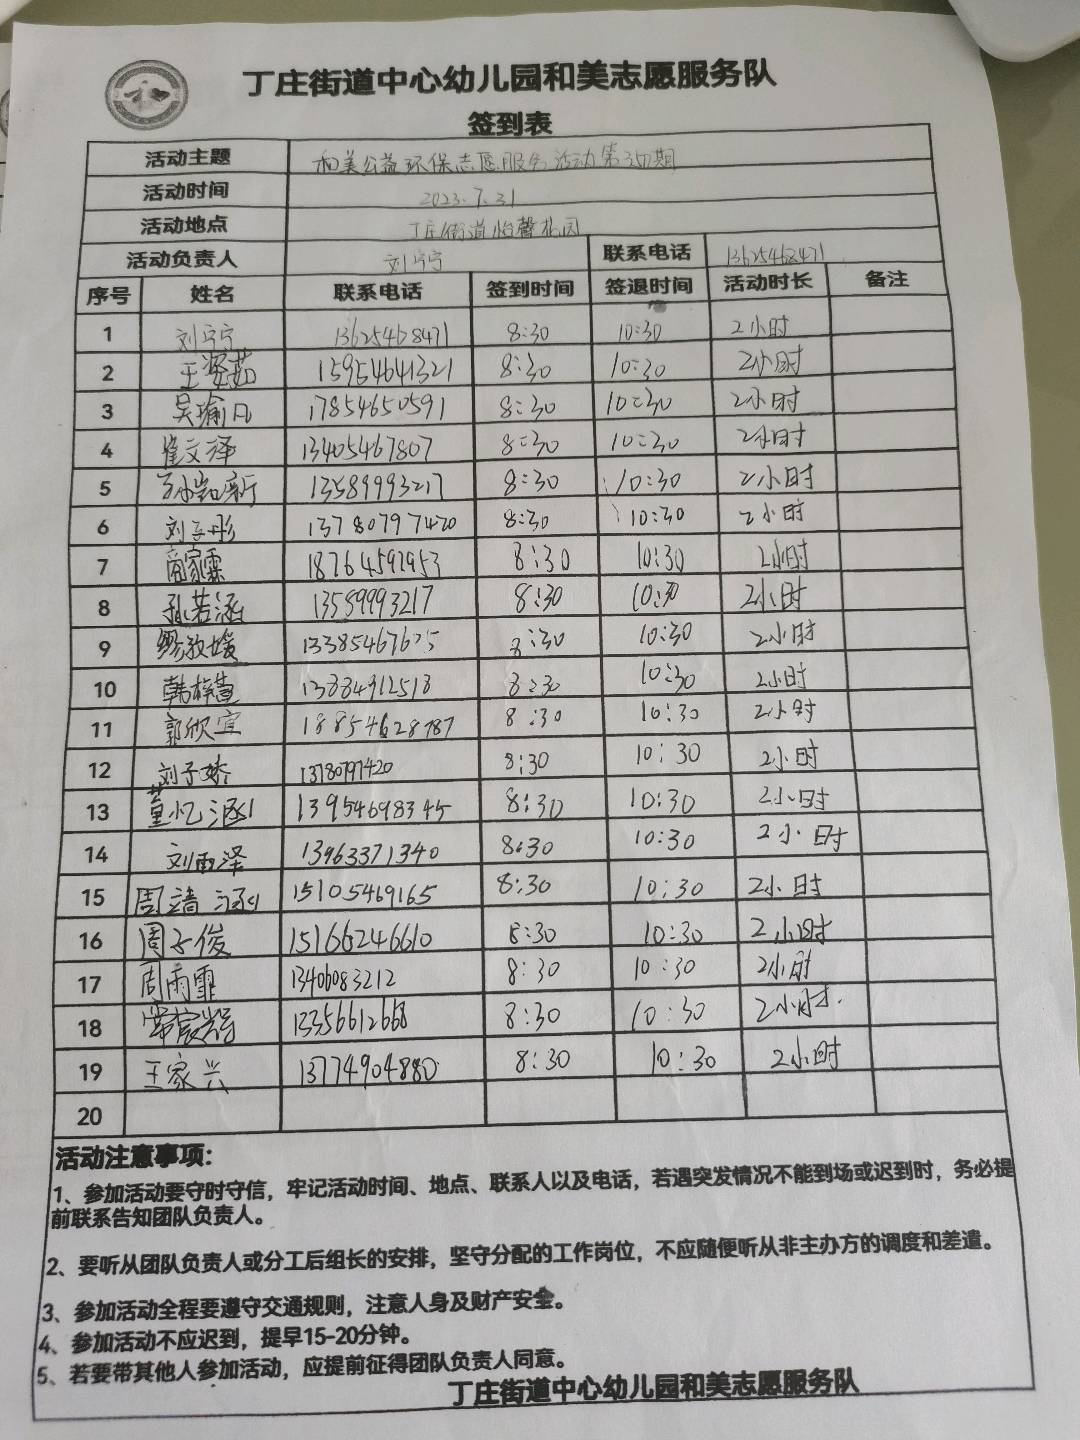 丁庄街道中心幼儿园和美志愿服务队
签到表
活动主题 和美公益环保志愿服务活动第 期
活动时间 2023.7.31
活动地点 丁庄街道怡馨花园
活动负责人 刘宁宁 联系电话 13625468471
序号 姓名 联系电话 签到时间 签退时间 活动时长 备注
1 刘宁宁 13625468471 8:30 10:30 2小时
2 王姿茹 15954641321 8:30 10:30 2小时
3 吴瑜凡 17854650591 8:30 10:30 2小时
4 崔文泽 13405467807 8:30 10:30 2小时
5 13589993217 8:30 10:30 2小时
6 刘子彤 13780797420 8:30 10:30 2小时
7 商家霖 18764592953 8:30 10:30 2小时
8 孙若涵 13589993217 8:30 10:30 2小时
9 13385467625 8:30 10:30 2小时
10 韩梓萱 13884912518 8:30 10:30 2小时
11 郭欣宜 18854628787 8:30 10:30 2小时
12 刘子娇 13780797420 8:30 10:30 2小时
13 董忆涵 13954698345 8:30 10:30 2小时
14 刘雨泽 13963371340 8:30 10:30 2小时
15 周靖涵 15105469165 8:30 10:30 2小时
16 周子俊 15166246610 8:30 10:30 2小时
17 周雨霏 13406083212 8:30 10:30 2小时
18 13356612668 8:30 10:30 2小时
19 王家兴 13774904880 8:30 10:30 2小时
20
活动注意事项:
1、参加活动要守时守信，牢记活动时间、地点、联系人以及电话，若遇突发情况不能到场或迟到时，务必提
前联系告知团队负责人。
2、要听从团队负责人或分工后组长的安排，坚守分配的工作岗位，不应随便听从非主办方的调度和差遣。
3、参加活动全程要遵守交通规则，注意人身及财产安全。
4、参加活动不应迟到，提早15-20分钟。
5、若要带其他人参加活动，应提前征得团队负责人同意。
丁庄街道中心幼儿园和美志愿服务队